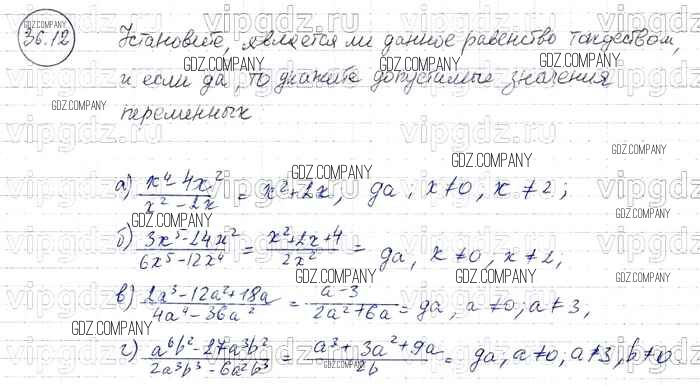 36.12 Установите, является ли данное равенство тождеством,
и если да, то укажите допустимые значения
переменных
а) (x⁴-4x²)/(x²-2x) = x²+2x, да, x≠0, x≠2;
б) (3x⁵-24x²)/(6x⁵-12x⁴) = (x²+2x+4)/(2x²) = да, x≠0, x≠2;
в) (2a³-12a²+18a)/(4a⁴-36a²) = (a-3)/(2a²+6a) = да, a≠0; a≠3,
г) (a⁶b²-27a³b²)/(2a³b³-6a²b³) = (a³+3a²+9a)/(2b) = да, a≠0, a≠3, b≠0
GDZ.COMPANY
vipgdz.ru